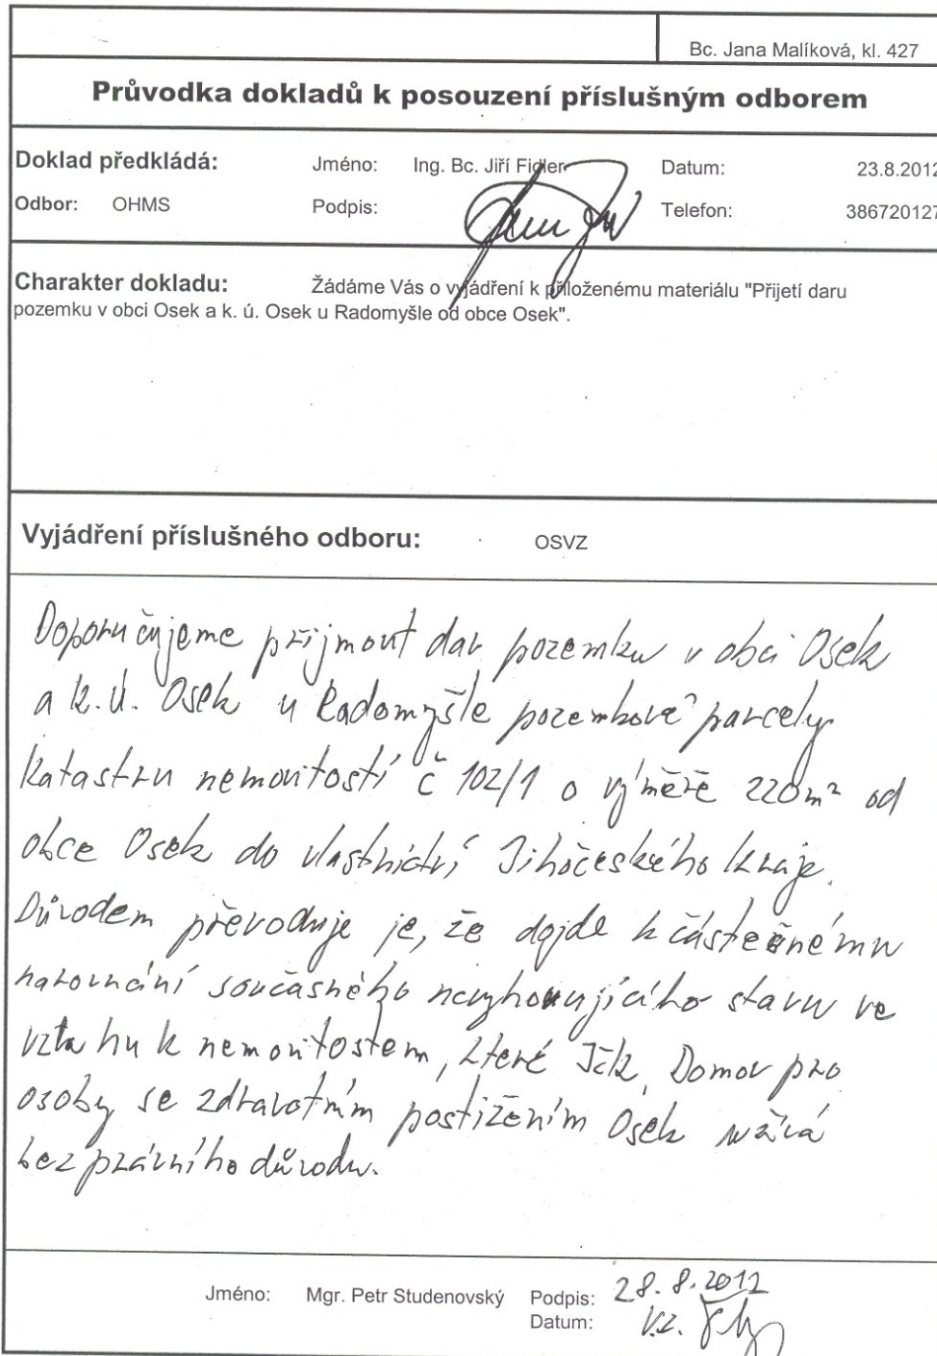 Bc. Jana Malíková, kl. 427
Průvodka dokladů k posouzení příslušným odborem
Doklad předkládá: Jméno: Ing. Bc. Jiří Fidler Datum: 23.8.2012
Odbor: OHMS Podpis: Telefon: 386720127
Charakter dokladu: Žádáme Vás o vyjádření k přiloženému materiálu "Přijetí daru
pozemku v obci Osek a k. ú. Osek u Radomyšle od obce Osek".
Vyjádření příslušného odboru: OSVZ
Doporučujeme přijmout dar pozemku v obci Osek
a k.ú. Osek u Radomyšle pozemkové parcely
katastru nemovitostí č 102/1 o výměře 220m² od
obce Osek do vlastnictví Jihočeského kraje.
Důvodem převoduje je, že dojde k částečnému
narovnání současného nevyhovujícího stavu ve
vztahu k nemovitostem, které Jčk, Domov pro
osoby se zdravotním postižením Osek užívá
bez právního důvodu.
Jméno: Mgr. Petr Studenovský Podpis: 28.8.2012
Datum: v.z.